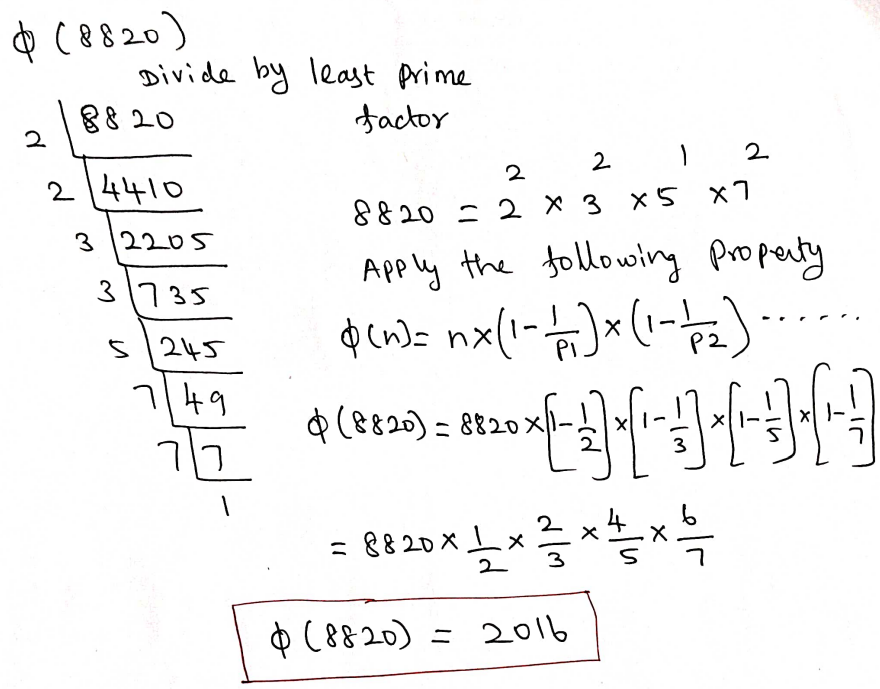 ϕ (8820)
Divide by least prime factor
2 | 8820
2 | 4410
3 | 2205
3 | 735
5 | 245
7 | 49
7 | 7
1
8820 = 2² × 3² × 5¹ × 7²
Apply the following Property
ϕ(n) = n×(1 - 1/P1) × (1 - 1/P2) ......
ϕ(8820) = 8820 × [1 - 1/2] × [1 - 1/3] × [1 - 1/5] × [1 - 1/7]
= 8820 × 1/2 × 2/3 × 4/5 × 6/7
ϕ (8820) = 2016